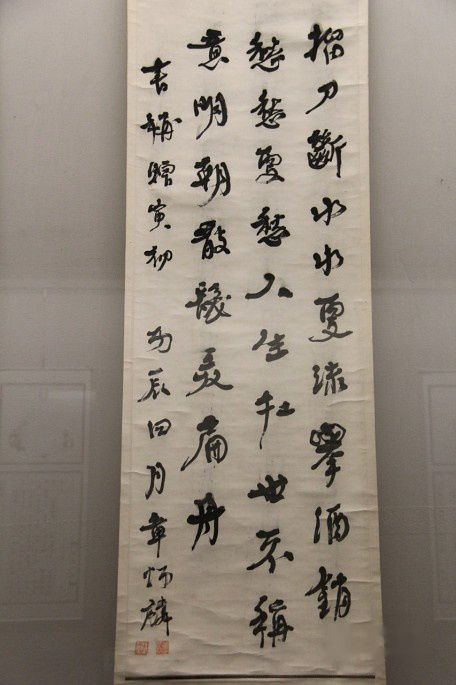 㨨刀斷水水更流舉酒銷
愁愁更愁人生在世不稱
意明朝散髮弄扁舟
書補贈寅初 丙辰四月章炳麟